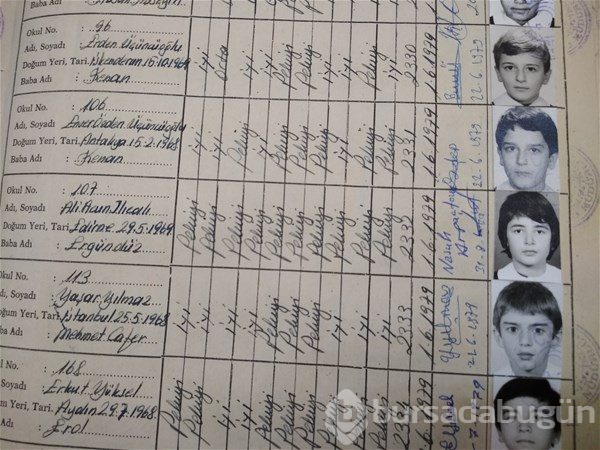 Baba Adı :
Okul No. : 96
Adı, Soyadı : Erden Üçüncüoğlu
Doğum Yeri, Tari. İskenderun 15.10.1969
Baba Adı : Kenan
iyi Orta iyi Pekiyi Pekiyi iyi iyi Pekiyi iyi 2330 1.6.1979 22.6.1979
Okul No. : 106
Adı, Soyadı : Enver Erden Üçüncüoğlu
Doğum Yeri, Tari. Antalya 15.2.1968
Baba Adı : Kenan
iyi iyi Pekiyi Pekiyi Pekiyi Pekiyi iyi Pekiyi iyi 2331 1.6.1979 22.6.1979
Okul No. : 107
Adı, Soyadı : Ali İhsan
Doğum Yeri, Tari. Edirne 29.5.1969
Baba Adı : Ergündüz
Pekiyi Pekiyi Pekiyi Pekiyi Pekiyi Pekiyi Pekiyi Pekiyi Pekiyi 1.6.1979
Okul No. : 113
Adı, Soyadı : Yaşar Yılmaz
Doğum Yeri, Tari. İstanbul 25.5.1968
Baba Adı : Mehmet Cafer
iyi iyi iyi Pekiyi Pekiyi Pekiyi iyi iyi iyi 2333 1.6.1979 21.6.1979
Okul No. : 168
Soyadı : Erkut Yüksel
Doğum Yeri, Tari. Aydın 29.7.1968
Adı : Erol
Pekiyi Pekiyi iyi Pekiyi Pekiyi Pekiyi 1.6.1979
bursadabugün